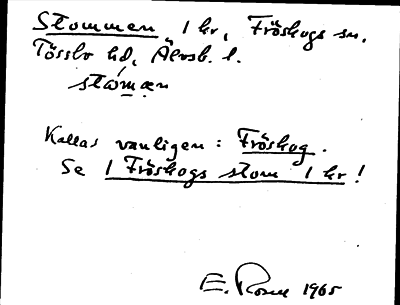 Stommen 1 kr, Fröskogs sn,
Tössbo hd, Älvsb. l.
stòmæn
Kallas vanligen: Fröskog.
Se 1 Fröskogs stom 1 kr!
E. Rosén 1965